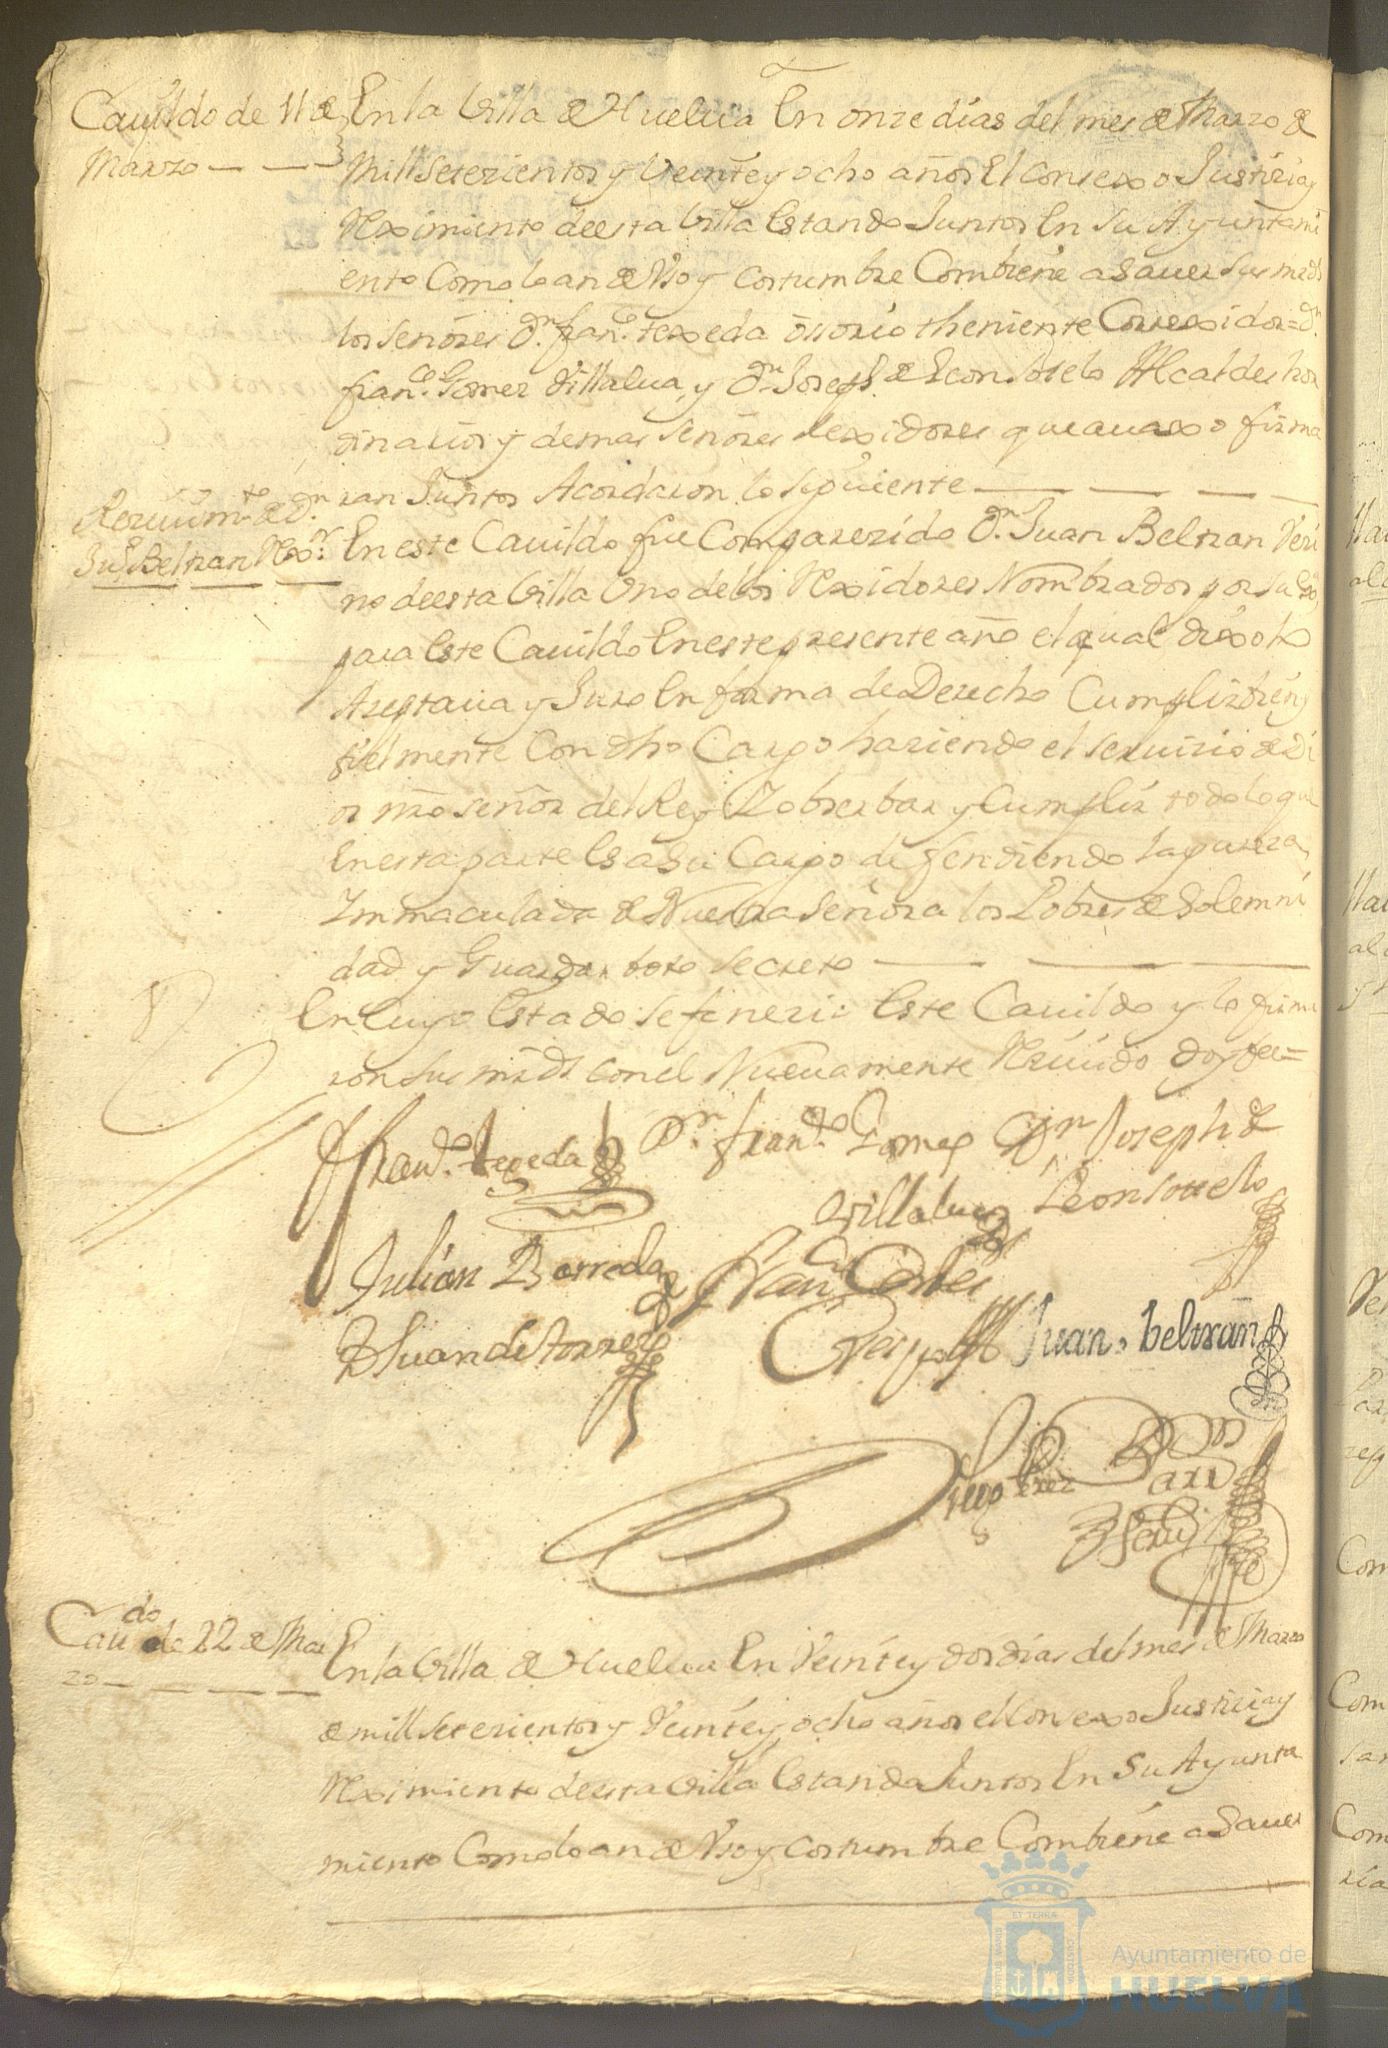 Cauildo de 11 de
Marzo
En la Villa de Huelua En onze dias del mes de Marzo de
Mill Setezientos y Veinte y ocho años El Consexo Justizia y
Reximiento de esta Villa Estando Juntos En su Ayuntami
ento Como lo an de Vso y costumbre Combiene a Sauer sus mrds
los señores Dn. franco. texeda ossorio theniente Correxidor = Dn.
franco. Gomez Villalua, y Dn. Joseph de Leon Sotelo Alcaldes hor
dinarios y demas señores Rexidores que auaxo firma
ran Juntos Acordaron lo siguiente
Reziuimto. de Dn.
Jun. Beltran Rexor.
En este Cauildo fue Comparezido Dn. Juan Beltran Vezi
no de esta Villa Vno de los Rexidores Nombrados por su Exa.
para Este Cauildo En este presente año el qual dixo lo
Azeptaua y Juro En forma de Derecho Cumplir bien y
fielmente Con dho Cargo haziendo el seruizio de Di
os nro señor del Rey Y obserbar y Cumplir todo lo que
En esta parte Es a Su Cargo defendiendo la pureza
Immaculada de Nuestra Señora los Pobres de Solemni
dad y Guardar boto secreto
En Cuyo Estado se fenezio Este Cauildo y lo firma
ron sus mrds con el Nueuamente Rziuido doy fee =
Frando. texeda
Dn. frando. Gomez
Villalua
Dn Joseph de
Leon Sottelo
Julian Borredo
Franco Cortes
Crespo
D Juan de torres
Juan. beltran
Diego Perez
Caudo de 22 de Mar
zo
En la Villa de Huelua En Veinte y dos dias del mes de Marzo
de mill Setezientos y Veinte y ocho años el Consexo Justizia y
Reximiento de esta Villa Estando Juntos En Su Ayunta
miento Como lo an de Vso y costumbre Combiene a Sauer
Ayuntamiento de
HUELVA